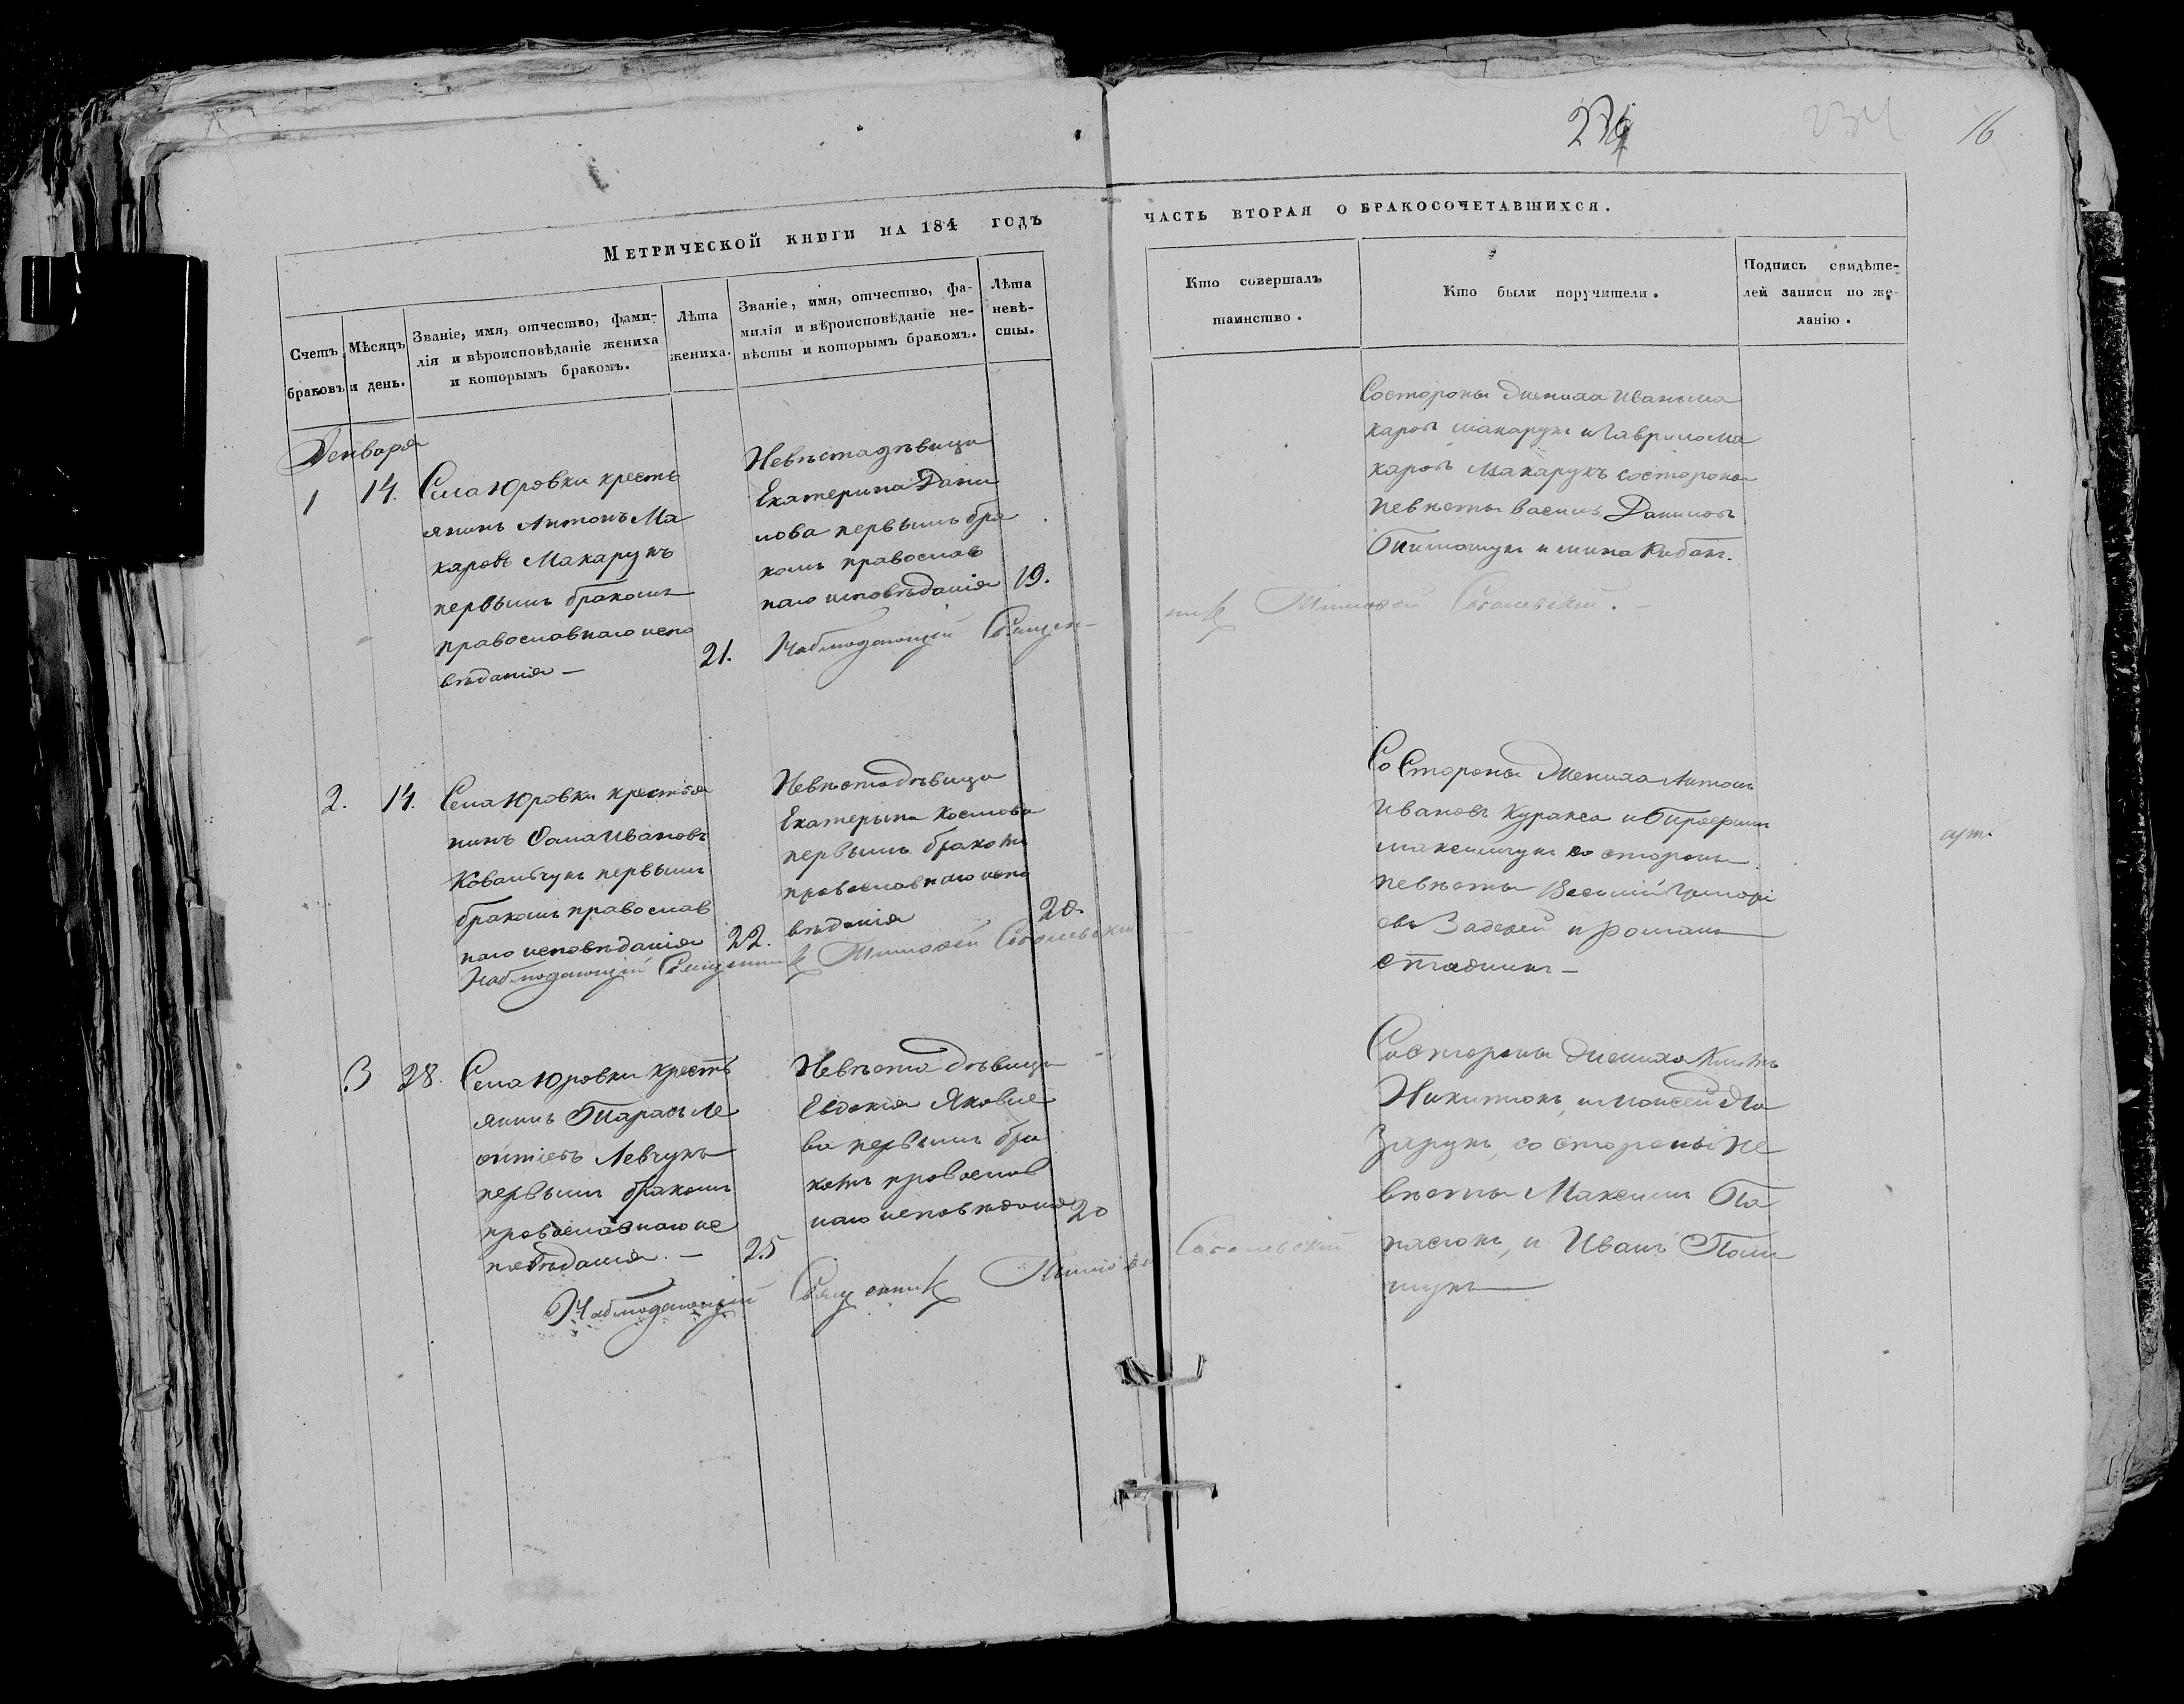 234
16
Метрической книги на 184 годъ
часть вторая о бракосочетавшихся.
Счетъ браковъ
Мѣсяцъ и день.
Званіе, имя, отчество, фами-
лія и вѣроисповѣданіе жениха
и которымъ бракомъ.
Лѣта
жениха.
Званіе, имя, отчество, фа-
милія и вѣроисповѣданіе не-
вѣсты и которымъ бракомъ.
Лѣта
невѣ-
сты.
Кто совершалъ
таинство.
Кто были поручители.
Подпись свидѣте-
лей записи по же-
ланію.
Генваря
1
14.
Села Юровки кресть
янинъ Антонъ Ма
каровъ Макарукъ
первымъ бракомъ
православнаго испо
вѣданія —
21.
Невѣста дѣвица
Екатерина Дани
лова первымъ бра
комъ православ
наго исповѣданія
19.
Состороны жениха Иванъ Ма
каровъ Макарукъ и Гаврило Ма
каровъ Макарукъ состороны
невѣсты Василь Даниловъ
и Мина
Наблюдающій Священ-
никъ Тимофей Соболевскій. —
2.
14.
Села Юровки крестья
нинъ Фома Ивановъ
Ковальчукъ первымъ
бракомъ православ
наго исповѣданія
22.
Невѣста дѣвица
Екатерына Космова
первымъ бракомъ
православнаго испо
вѣданія
20.
Со Стороны Жениха Антонъ
Ивановъ Кураксa и
Максимчукъ со стороны
невѣсты Василій Григорі
евъ и Романъ
Наблюдающій Священникъ Тимофей Соболевскій
3
28.
Села Юровки кресть
янинъ Тарасъ Ле
онтіевъ Левчукъ
первымъ бракомъ
православнаго ис
повѣданія. —
25
Невѣста дѣвица
Евдокія Яковле
ва первымъ бра
комъ православ
наго исповѣданія
20
Состороны жениха Климъ
Никитюкъ, и Моисей На
зарукъ, со стороны не
вѣсты Максимъ Па
насюкъ, и Иванъ Поли
щукъ —
Наблюдающій Священникъ Тимофей Соболевскій